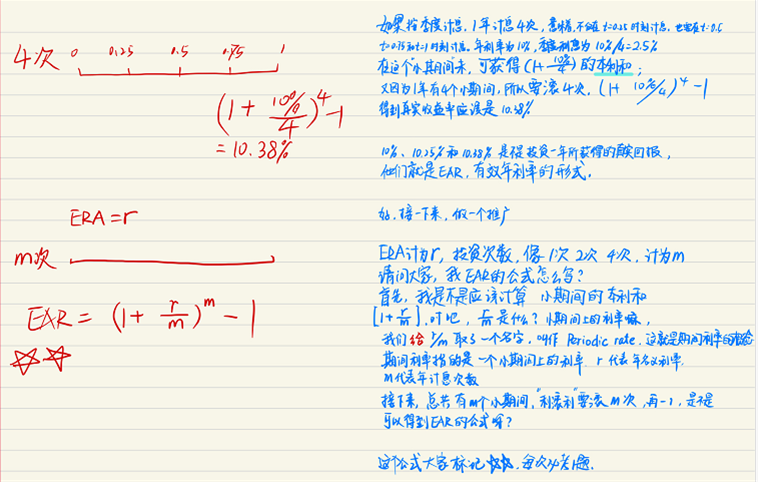 如果按季度计息，1年计息4次，意味着，不仅在 t=0.25 时刻计息，也要在t=0.5
t=0.75和t=1时刻计息。年利率为10%，季度利息为10%/4=2.5%
4次 0 0.25 0.5 0.75 1
在这个小期间末，可获得(1+10%/4)的本利和；
又因为1年有4个小期间，所以要滚4次，(1+ 10%/4)^4 -1
(1 + 10%/4)^4 -1
得到真实收益率应该是10.38%
= 10.38%
10%、10.25%和10.38% 是我投资一年所获得的真实回报，
他们就是EAR，有效年利率的形式。
ERA=r
好，接下来，做一个推广
m次
ERA计为r，投资次数，像1次 2次 4次，计为m
请问大家，我EAR的公式怎么写？
首先，我是不是应该计算 小期间的本利和
EAR = (1 + r/m)^m - 1
[1+r/m]，对吧，r/m是什么？小期间上的利率嘛，
我们给r/m取了一个名字，叫作 Periodic rate，这就是期间利率的概念
☆☆
期间利率指的是一个小期间上的利率，r 代表年名义利率，
m代表年计息次数
接下来，总共有m个小期间，"利滚利"要滚m次，再-1，是不是
可以得到EAR的公式呀？
这个公式大家标记☆☆，每次必考题.